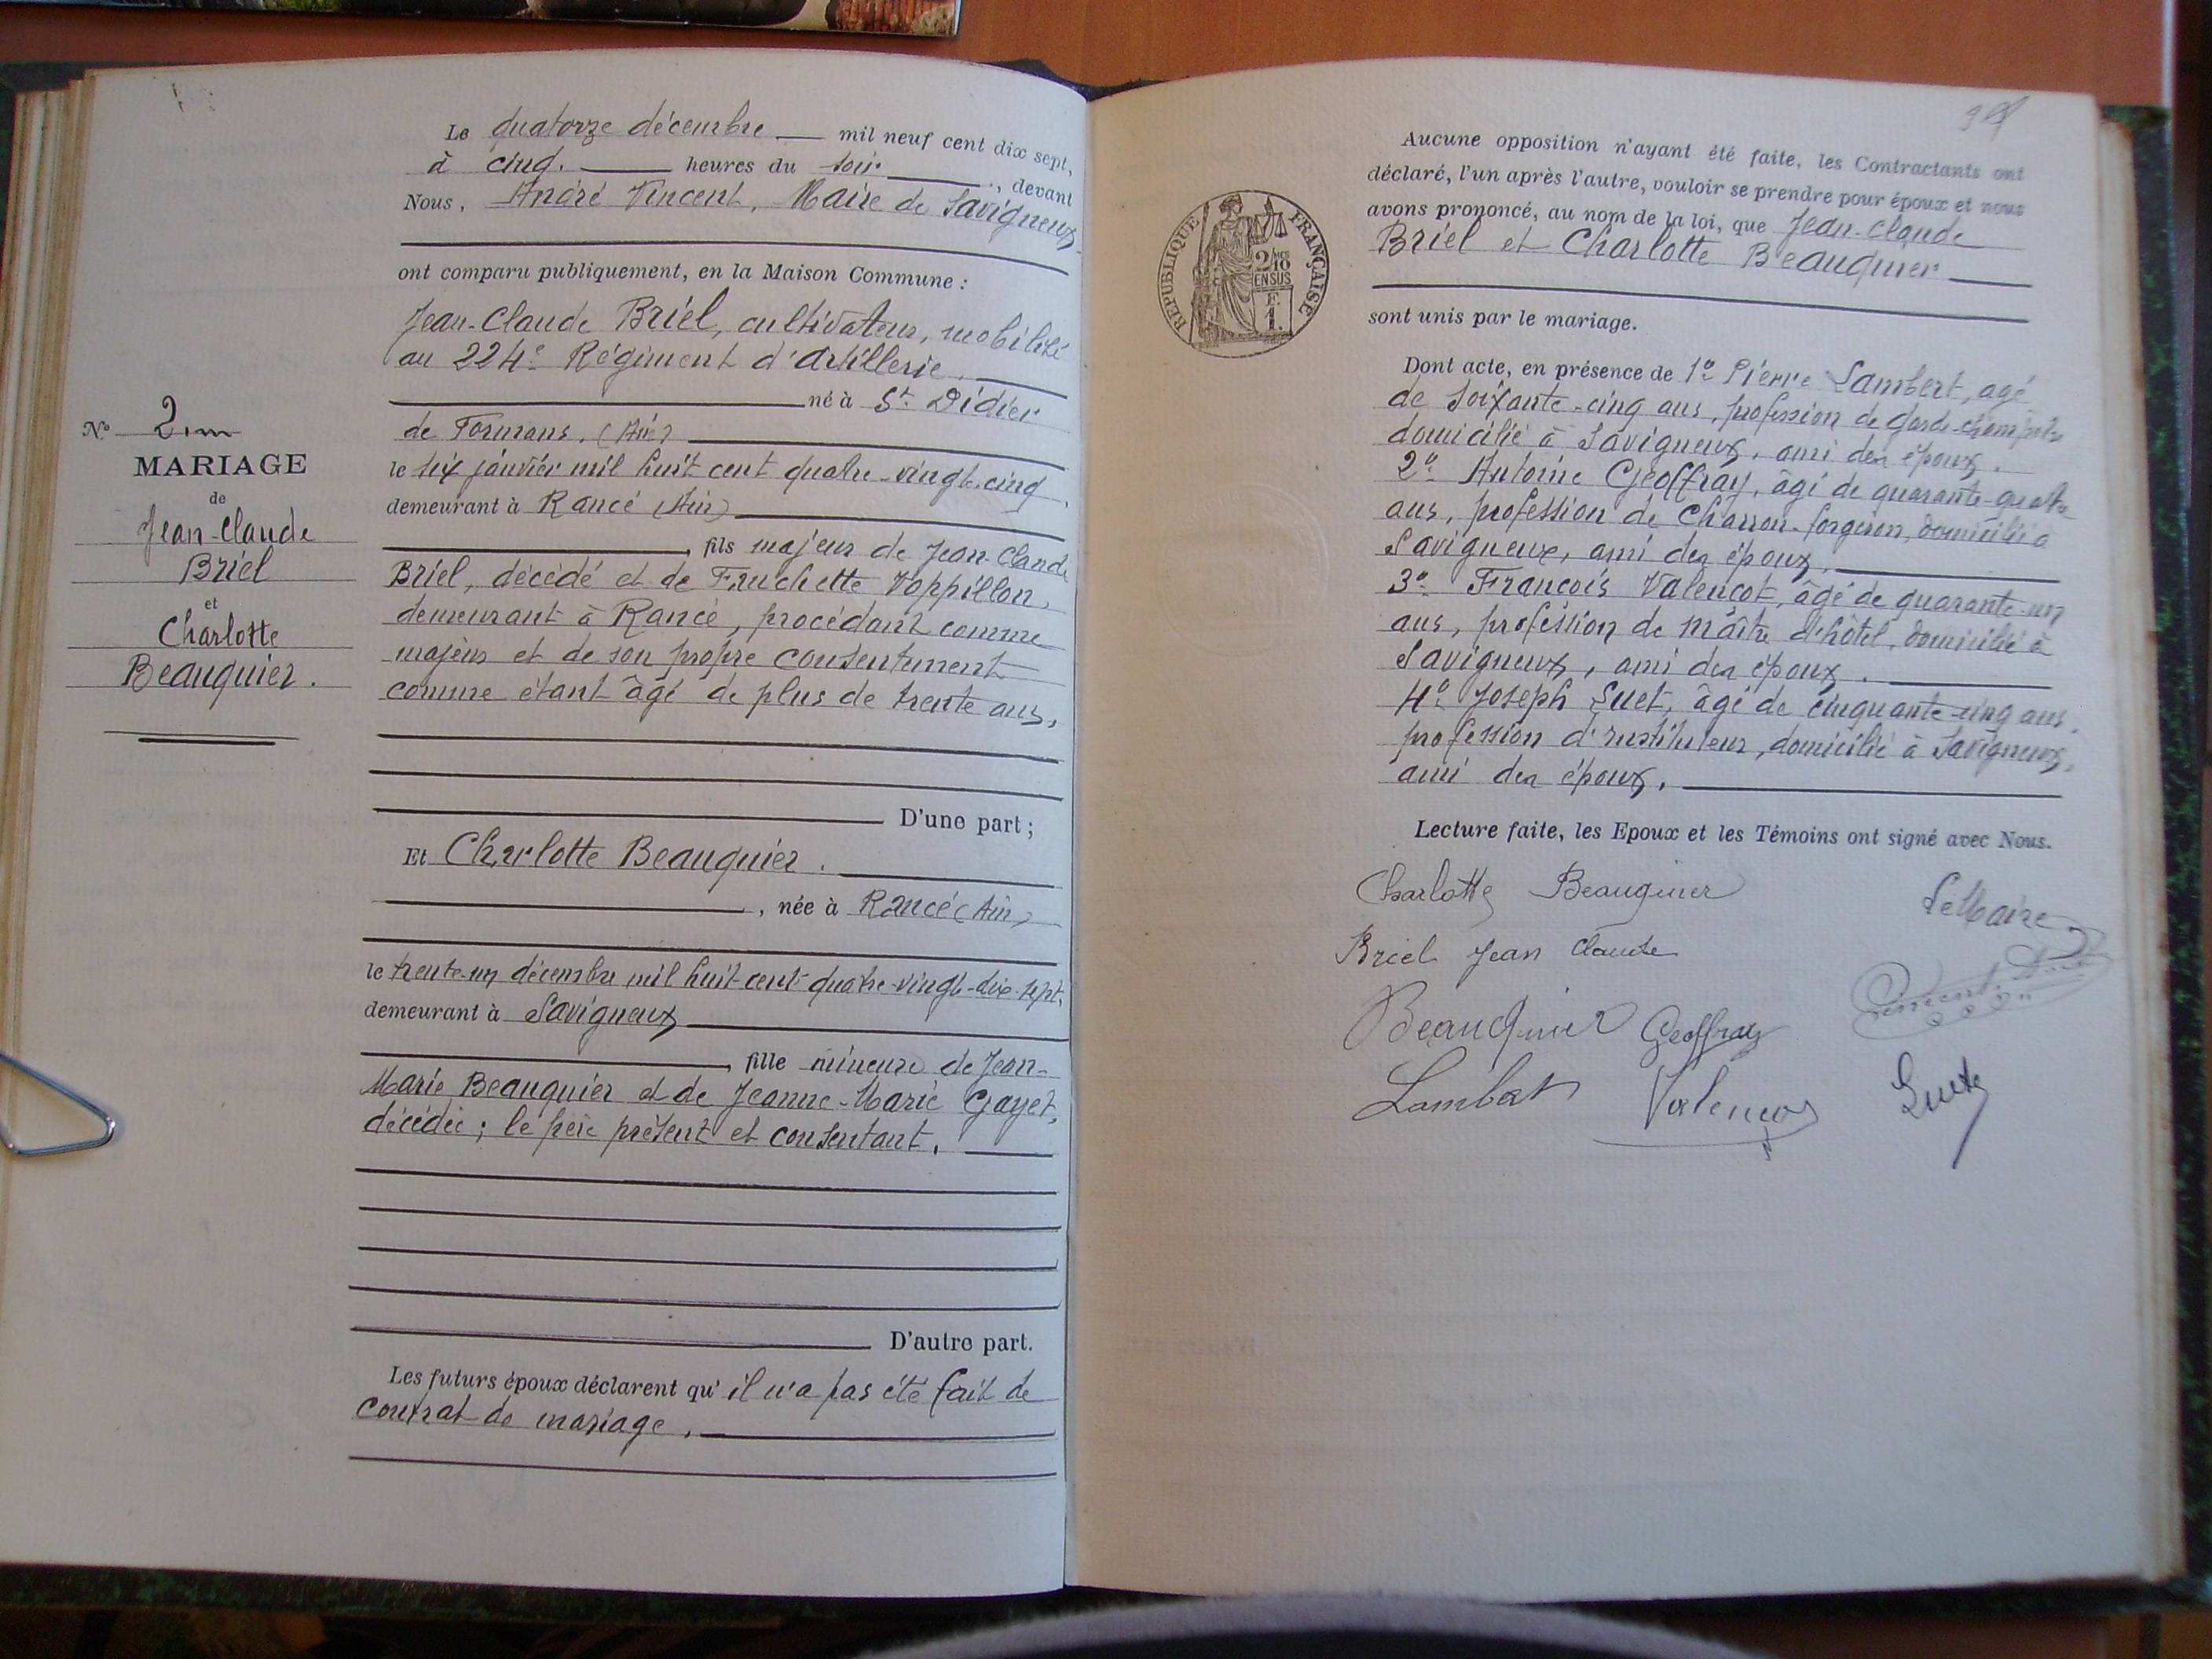 Nº 2em
MARIAGE
de
Jean-Claude
Briel
et
Charlotte
Beauquier.
Le quatorze décembre mil neuf cent dix sept,
à cinq. heures du soir, devant
Nous, André Vincent, Maire de Savigneux
ont comparu publiquement, en la Maison Commune :
Jean-Claude Briel, cultivateur, mobilisé
au 224e Régiment d'Artillerie.
né à St Didier
de Formans. (Ain)
le six janvier mil huit cent quatre-vingt-cinq,
demeurant à Rancé (Ain)
, fils majeur de Jean-Claude
Briel, décédé et de Fruchette Voppillon,
demeurant à Rancé, procédant comme
majeur et de son propre consentement
comme étant âgé de plus de trente ans,
D'une part ;
Et Charlotte Beauquier.
, née à Rancé (Ain)
le trente-un décembre mil huit-cent-quatre-vingt-dix-sept,
demeurant à Savigneux
, fille mineure de Jean-
Marie Beauquier et de Jeanne-Marie Gayet,
décédée ; le père présent et consentant.
D'autre part.
Les futurs époux déclarent qu'il n'a pas été fait de
contrat de mariage.
RÉPUBLIQUE FRANÇAISE
2/10
EN SUS
F.
1.
Aucune opposition n'ayant été faite, les Contractants ont
déclaré, l'un après l'autre, vouloir se prendre pour époux et nous
avons prononcé, au nom de la loi, que Jean-Claude
Briel et Charlotte Beauquier
sont unis par le mariage.
Dont acte, en présence de 1º Pierre Lambert, agé
de soixante-cinq ans, profession de garde-champêtre
domicilié à Savigneux, ami des époux.
2º Antoine Geoffray, âgé de quarante-quatre
ans, profession de Charron-forgeron, domicilié à
Savigneux, ami des époux.
3º François Valençot, âgé de quarante-un
ans, profession de maître d'hôtel, domicilié à
Savigneux, ami des époux.
4º Joseph Suet, âgé de cinquante-cinq ans,
profession d'instituteur, domicilié à Savigneux,
ami des époux.
Lecture faite, les Epoux et les Témoins ont signé avec Nous.
Charlotte Beauquier
Le Maire
Briel Jean Claude
Vincent
Beauquier Geoffray
Lambert Valençot Suet